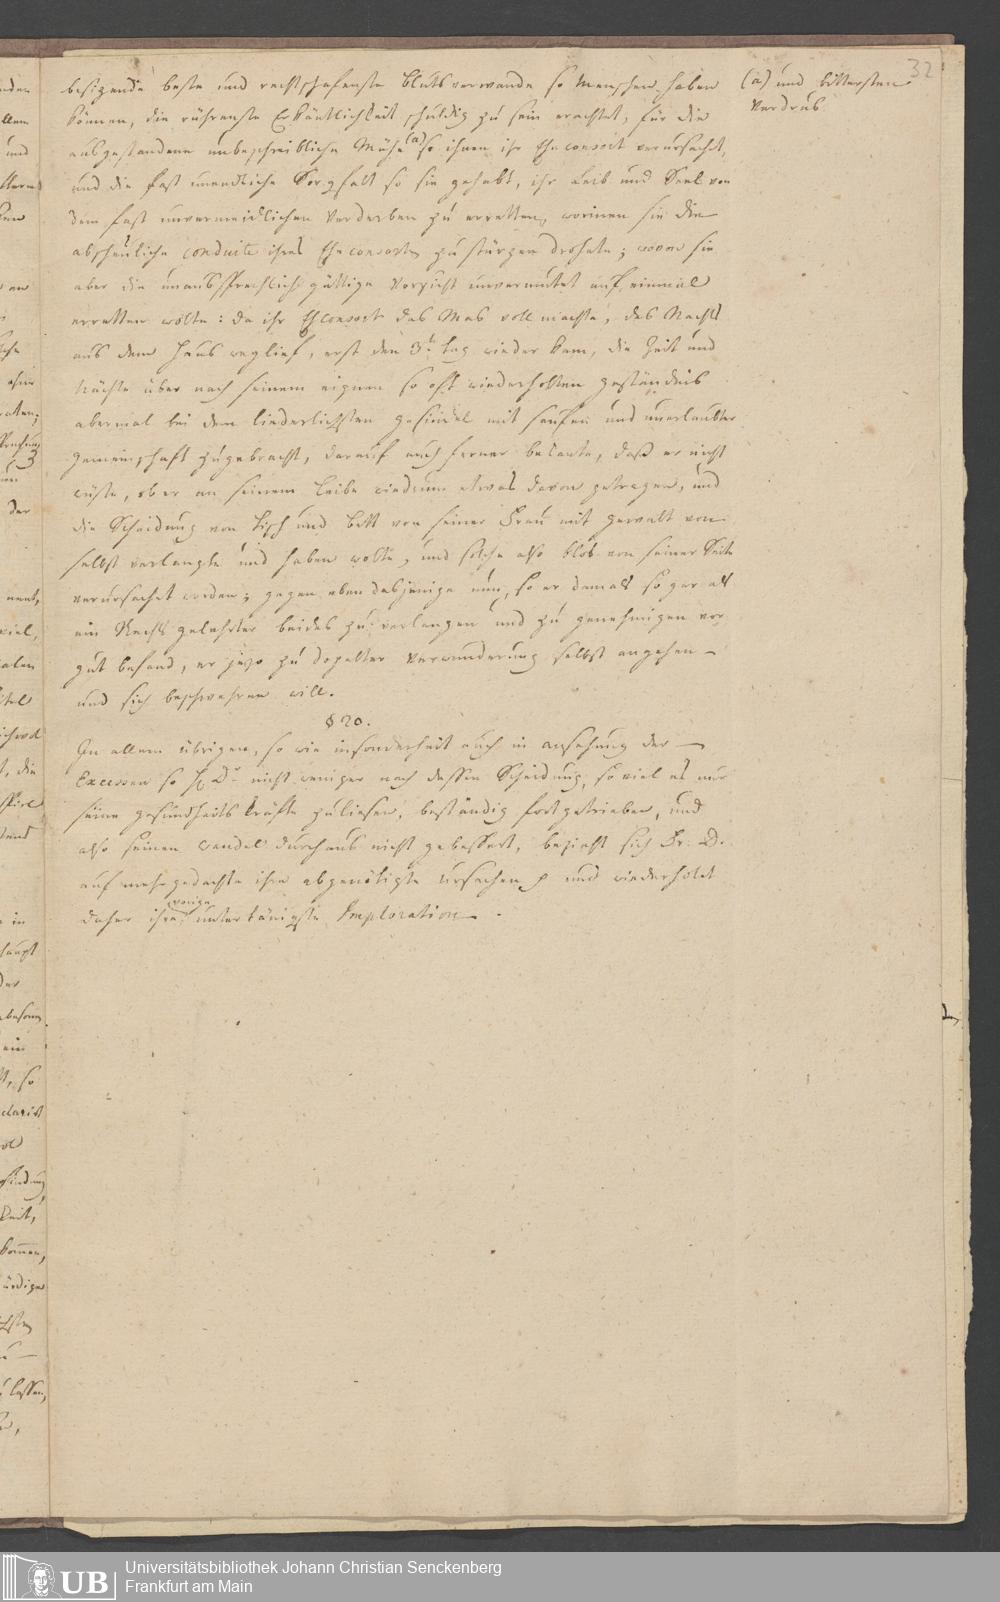 32
besizende beste und rechtschafenste bluts verwande so Menschen haben
können, die rührenste Erkäntlichkeit schuldig zu sein erachtet, für die
ausgestandene unbeschreibliche Mühe (a) so ihnen ihr Eheconsort verursachet,
(a) und bittersten
Verdrus
und die fast unendliche Sorgfalt so sie gehabt, ihr Leib und Seel von
dem fast unvermeidlichen Verderben zu erretten, worinen sie die
abscheuliche conduite ihres Eheconsorten zu stürzen drohete; wovon sie
aber die unaussprechlich güttige Vorsicht unvermutet auf einmal
erretten wolte: da ihr Eheconsort das Mas voll machte, des Nachts
aus dem Haus weglief, erst den 3t. tag wieder kam, die Zeit und
Nächte über nach seinem eignen so oft wiederholten geständnis
abermal bei dem liederlichsten gesindel mit saufen und unerlaubter
gemeinschaft zugebracht, darauf auch ferner bekante, daß er nicht
wüste, ob er an seinem Leibe wiedrum etwas davon getragen, und
die Scheidung von Tisch und bett von seiner Frau mit gewalt von
selbst verlangte und haben wolte, und solche also blos von seiner Seite
verursachet worden; gegen eben dasjenige nun, so er damals sogar als
ein Rechtsgelehrter beides zu verlangen und zu genehmigen vor
gut befand, er jezo zu dopelter Verwunderung selbst angehen
und sich beschwehren will.
§ 20.
In allem übrigen, so wie insonderheit auch in ansehung der
Excessen so H. Dr. nicht weniger nach dessen Scheidung, so viel es nur
seine gesundheits kräfte zuliesen, beständig fortgetrieben, und
also seinen Wandel durchaus nicht gebessert, bezieht sich Fr. D.
auf mehrgedachte ihre abgenötigte ursachen und wiederholet
daher ihre vorige untertänigste Imploration.
Universitätsbibliothek Johann Christian Senckenberg
Frankfurt am Main
UB